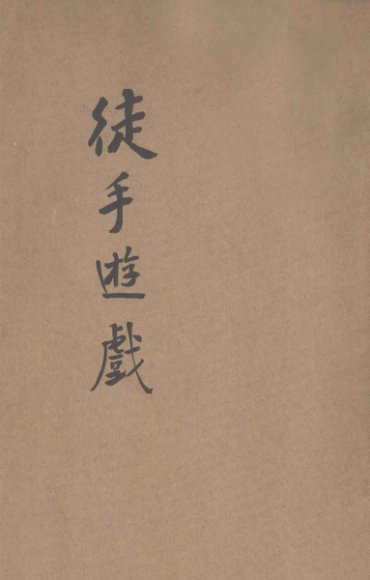 徒手遊戲